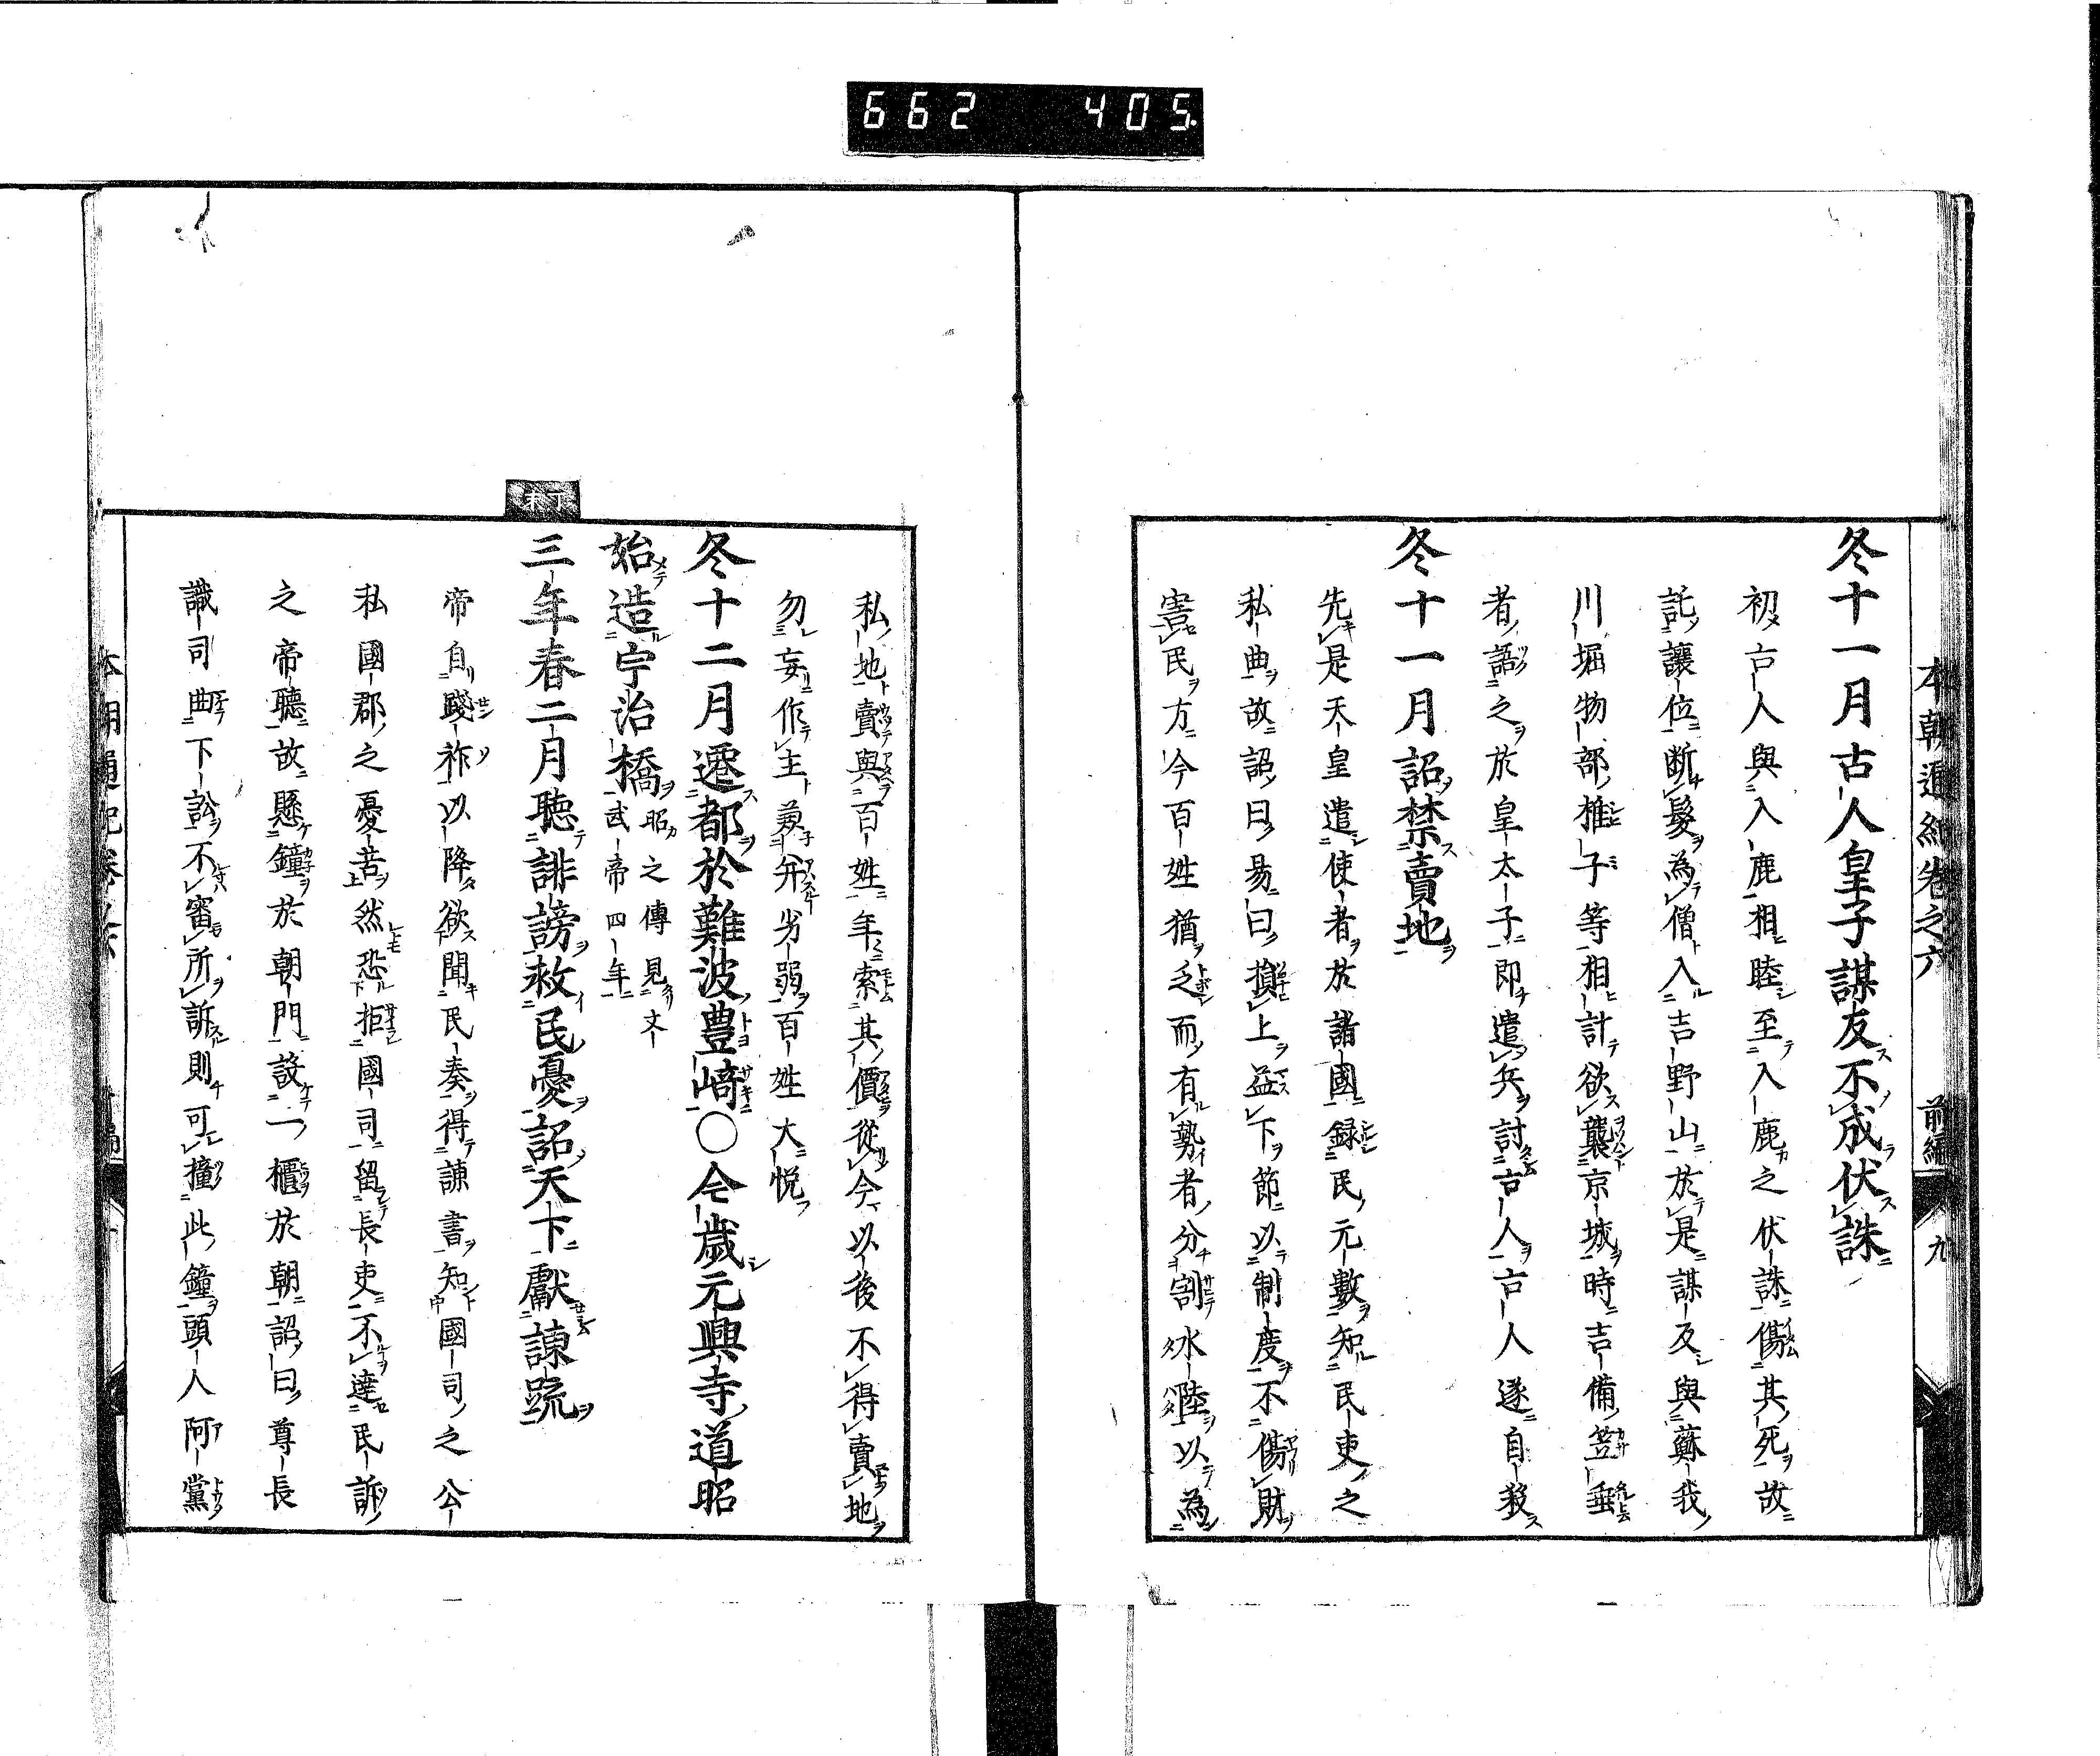 662 405
本朝通紀卷之六 前編 九
冬十一月古人皇子謀反不成伏誅
初古人與入鹿相睦至入鹿之伏誅傷其死故
託讓位断髮為僧入吉野山於是謀反與蘇我
川堀物部椎子等相計欲襲京城時吉備笠垂
者語之於皇太子即遣兵討古人古人遂自殺
冬十一月詔禁賣地
先是天皇遣使者於諸國録民元數知民吏之
私曲故詔曰易曰損上益下節以制度不傷財
害民方今百姓猶乏而有勢者分割水陸以為
私地賣與百姓年索其價從今以後不得賣地
勿妄作主兼并劣弱百姓大悦
冬十二月遷都於難波豊﨑○今歲元興寺道昭
始造宇治橋昭之傳見文武帝四年
丁未
三年春二月聽誹謗救民憂詔天下獻諫䟽
帝自踐祚以降欲聞民奏得諌書知國司之公
私國郡之憂苦然恐拒國司留長吏不達民訴
之帝聽故懸鐘於朝門設一櫃於朝詔曰尊長
識司曲下訟不審所訴則可撞此鐘頭人阿黨